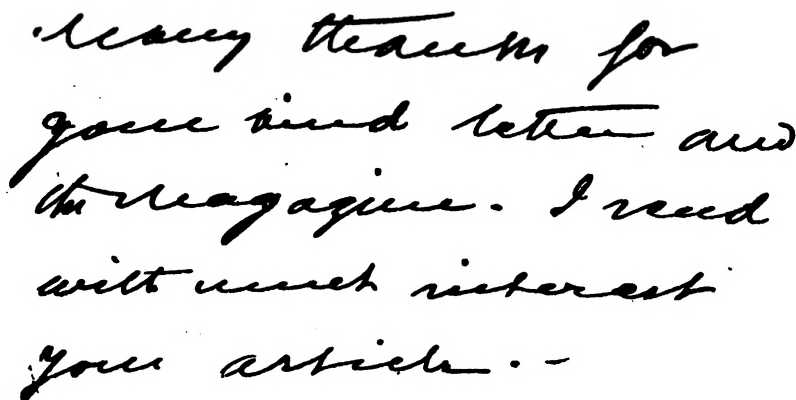 Many thanks for
your kind letter and
the Magazine. I read
with much interest
your article. -